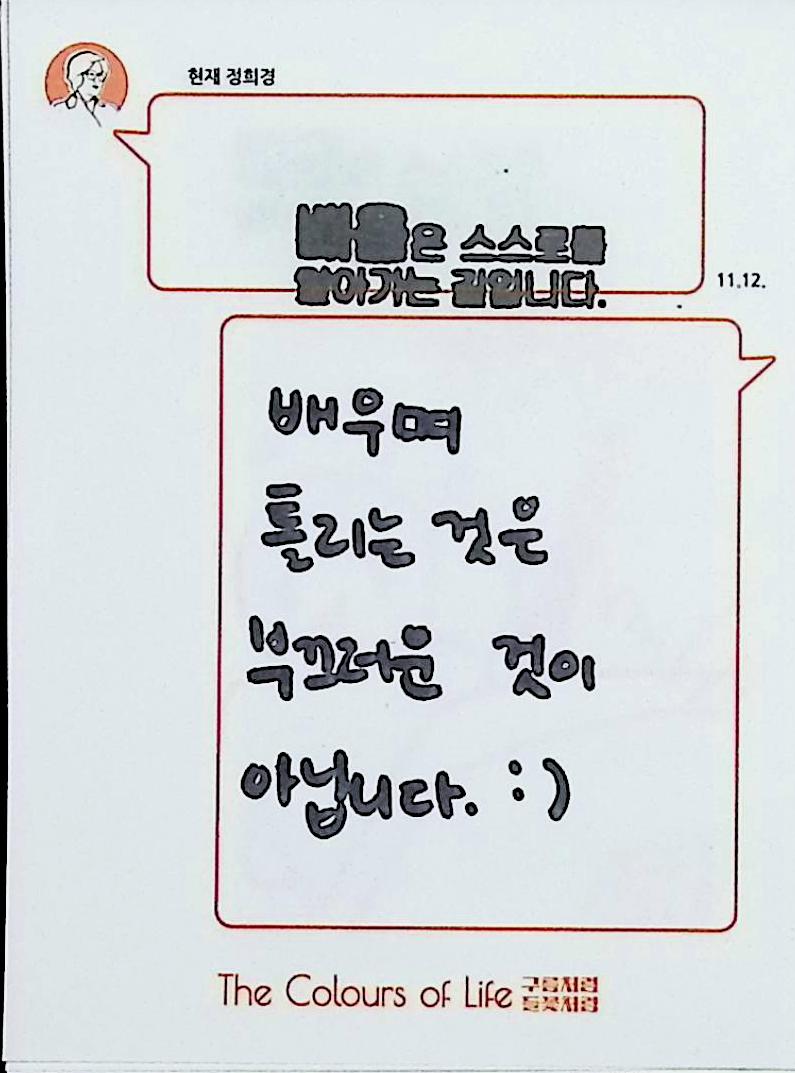 현재 정희경
배움은 스스로를
알아가는 길입니다.
11.12.
배우며
틀리는 것은
부끄러운 것이
아닙니다. :)
The Colours of Life 구름처럼
들꽃처럼